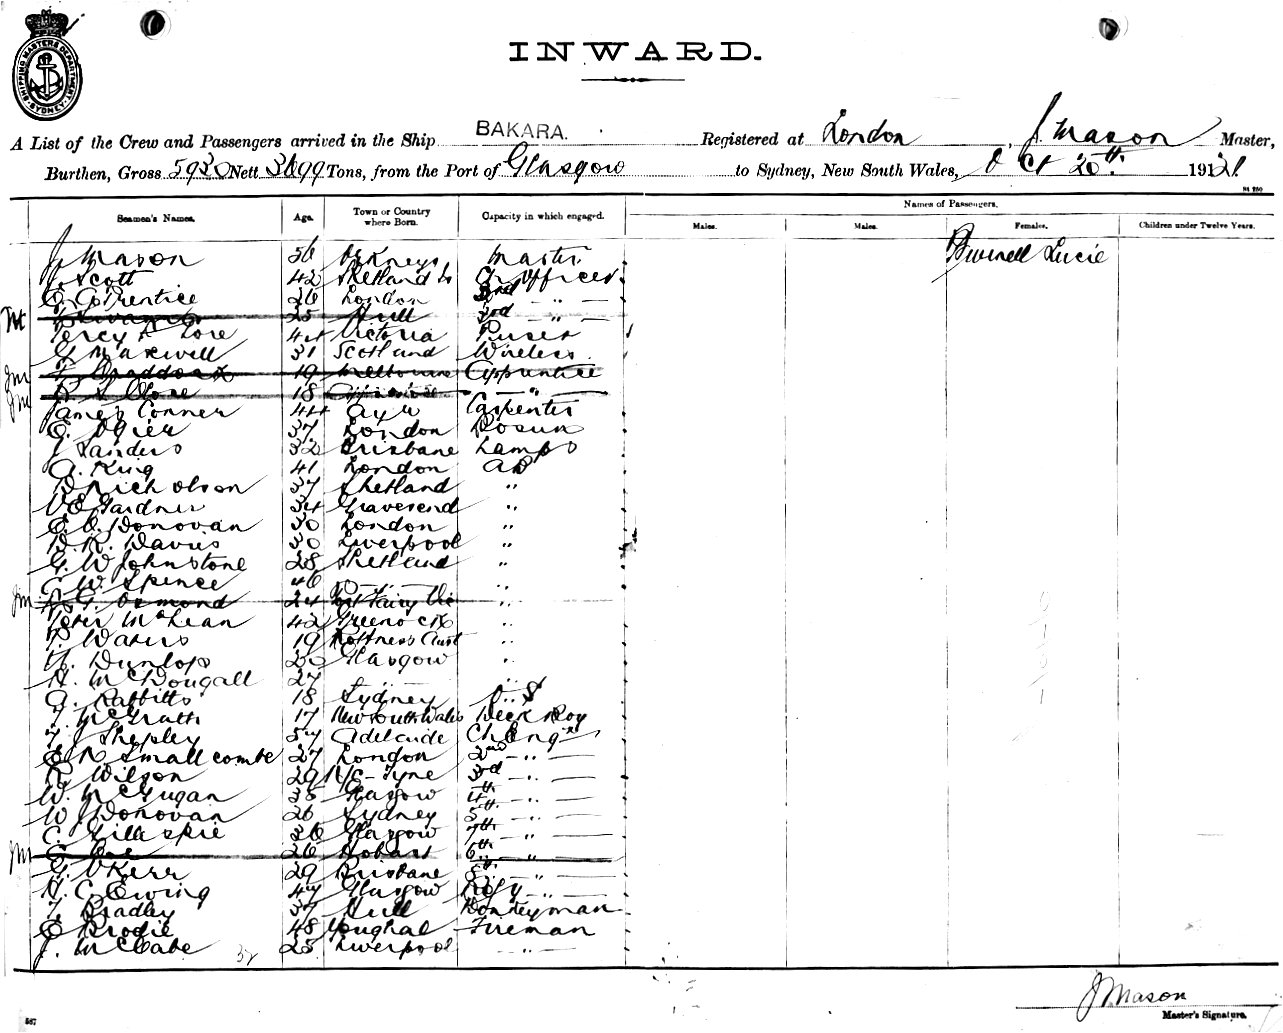 SHIPPING MASTERS DEPARTMENT SYDNEY
INWARD.
A List of the Crew and Passengers arrived in the Ship BAKARA. Registered at London, J Mason Master,
Burthen, Gross 5930 Nett Tons, from the Port of Glasgow to Sydney, New South Wales, Oct 20th 1921
Seamen's Names. Age. Town or Country where Born. Capacity in which engaged. Names of Passengers.
Males. Males. Females. Children under Twelve Years.
J. Mason 56 Orkneys Master Lucie
J. Scott 42 Shetland Is Ch Officer
Prentice 26 London 2nd "
25 Hull 3rd "
Percy 44 Victoria Purser
G Maxwell 31 Scotland Wireless
19 Melbourne Apprentice
18 "
James Conner 44 Ayr Carpenter
E. Ogier 37 London Bosun
J Sanders 32 Brisbane Lamps
A. King 41 London AB
Nicholson 37 Shetland "
Gardner 34 Gravesend "
E. Donovan 30 London "
D. R. Davies 30 Liverpool "
G. W Johnstone 28 Shetland "
W. Spence 46 "
Osmond 24 Port Fairy Vic "
Peter McLean 42 Greenock "
P. Waters 19 Rottness Aust "
Dunlop 20 Glasgow "
H. McDougall 27 "
A. Rabbitts 18 Sydney O.S
McGrath 17 New South Wales Deck Boy
Shepley 54 Adelaide Ch Engr
E R Smallcombe 27 London 2nd "
R Wilson 29 N/C-Tyne 3rd "
W. McGugan 35 Glasgow 4th "
W J Donovan 26 Sydney 5th "
C. Gillespie 36 Glasgow 7th "
26 Hobart 6th "
G. V Kerr 29 Brisbane 8th "
H. C. Ewing 47 Glasgow Refg "
T. Bradley 37 Hull Donkeyman
E Brodie 48 Youghal Fireman
J. McCabe 25 Liverpool "
J Mason
Master's Signature.
587